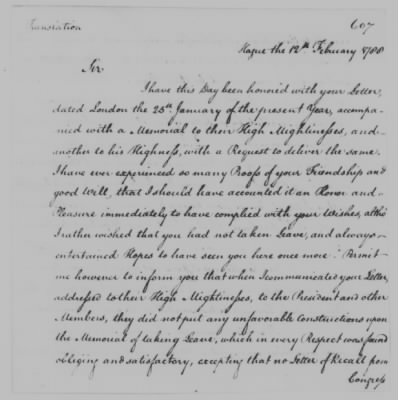 Translation
607
Hague the 12th February 1788
Sir
I have this Day been honored with your Letter,
dated London the 25th January of the present Year, accompa-
nied with a Memorial to their High Mightinesses, and
another to his Highness, with a Request to deliver the same.
I have ever experienced so many Proofs of your Friendship and
good Will, that I should have accounted it an Honor and
Pleasure immediately to have complied with your Wishes, altho'
I rather wished that you had not taken Leave, and always
entertained Hopes to have seen you here once more. Permit
me however to inform you that when I communicated your Letter,
addressed to their High Mightinesses, to the President and other
Members, they did not put any unfavorable Constructions upon
the Memorial of taking Leave, which in every Respect was found
obliging and satisfactory, excepting that no Letter of Recall from
Congress